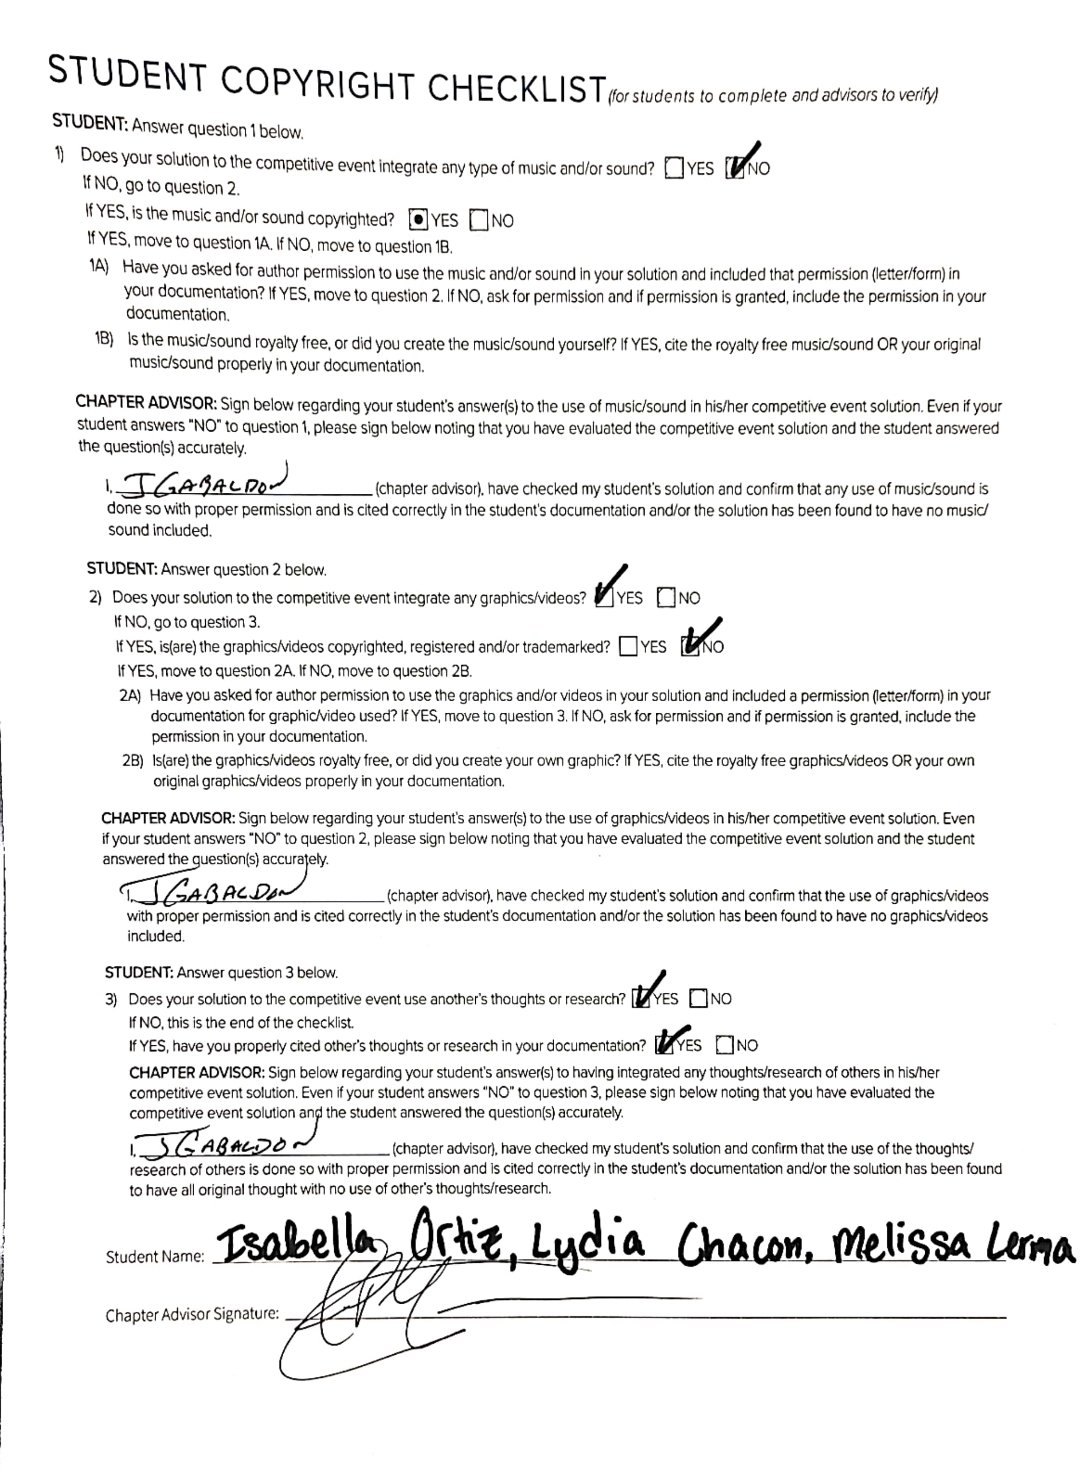 STUDENT COPYRIGHT CHECKLIST (for students to complete and advisors to verify)
STUDENT: Answer question 1 below.
1) Does your solution to the competitive event integrate any type of music and/or sound? YES NO
If NO, go to question 2.
If YES, is the music and/or sound copyrighted? YES NO
If YES, move to question 1A. If NO, move to question 1B.
1A) Have you asked for author permission to use the music and/or sound in your solution and included that permission (letter/form) in
your documentation? If YES, move to question 2. If NO, ask for permission and if permission is granted, include the permission in your
documentation.
1B) Is the music/sound royalty free, or did you create the music/sound yourself? If YES, cite the royalty free music/sound OR your original
music/sound properly in your documentation.
CHAPTER ADVISOR: Sign below regarding your student's answer(s) to the use of music/sound in his/her competitive event solution. Even if your
student answers "NO" to question 1, please sign below noting that you have evaluated the competitive event solution and the student answered
the question(s) accurately.
I, J GABALDON (chapter advisor), have checked my student's solution and confirm that any use of music/sound is
done so with proper permission and is cited correctly in the student's documentation and/or the solution has been found to have no music/
sound included.
STUDENT: Answer question 2 below.
2) Does your solution to the competitive event integrate any graphics/videos? YES NO
If NO, go to question 3.
If YES, is(are) the graphics/videos copyrighted, registered and/or trademarked? YES NO
If YES, move to question 2A. If NO, move to question 2B.
2A) Have you asked for author permission to use the graphics and/or videos in your solution and included a permission (letter/form) in your
documentation for graphic/video used? If YES, move to question 3. If NO, ask for permission and if permission is granted, include the
permission in your documentation.
2B) Is(are) the graphics/videos royalty free, or did you create your own graphic? If YES, cite the royalty free graphics/videos OR your own
original graphics/videos properly in your documentation.
CHAPTER ADVISOR: Sign below regarding your student's answer(s) to the use of graphics/videos in his/her competitive event solution. Even
if your student answers "NO" to question 2, please sign below noting that you have evaluated the competitive event solution and the student
answered the question(s) accurately.
I, J GABALDON (chapter advisor), have checked my student's solution and confirm that the use of graphics/videos
with proper permission and is cited correctly in the student's documentation and/or the solution has been found to have no graphics/videos
included.
STUDENT: Answer question 3 below.
3) Does your solution to the competitive event use another's thoughts or research? YES NO
If NO, this is the end of the checklist.
If YES, have you properly cited other's thoughts or research in your documentation? YES NO
CHAPTER ADVISOR: Sign below regarding your student's answer(s) to having integrated any thoughts/research of others in his/her
competitive event solution. Even if your student answers "NO" to question 3, please sign below noting that you have evaluated the
competitive event solution and the student answered the question(s) accurately.
I, J GABALDON (chapter advisor), have checked my student's solution and confirm that the use of the thoughts/
research of others is done so with proper permission and is cited correctly in the student's documentation and/or the solution has been found
to have all original thought with no use of other's thoughts/research.
Student Name: Isabella Ortiz, Lydia Chacon, Melissa Lerma
Chapter Advisor Signature: